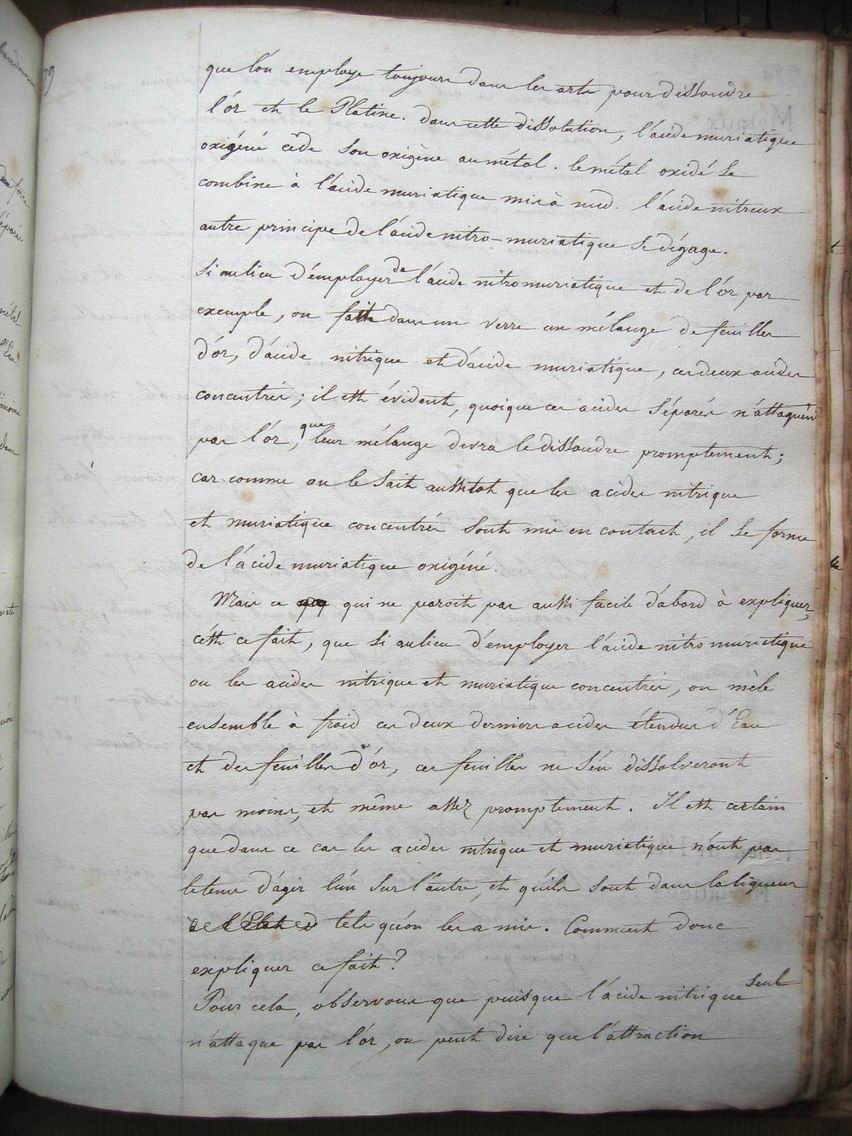 que l'on employe toujours dans les arts pour dissoudre
l'or et le Platine. dans cette dissolution, l'acide muriatique
oxigéné cède son oxigène au métal. le métal oxidé se
combine à l'acide muriatique mis à nud. l'acide nitreux
autre principe de l'acide nitro-muriatique se dégage.
Si au lieu d'employer de l'acide nitromuriatique et de l'or par
exemple, on fait dans un verre un mélange de feuilles
d'or, d'acide nitrique et d'acide muriatique, ces deux acides
concentrés; il est évident, quoique ces acides séparés n'attaquent
pas l'or, que leur mélange devra le dissoudre promptement;
car comme on le sait aussitot que les acides nitrique
et muriatique concentrés sont mis en contact, il se forme
de l'acide muriatique oxigéné.
Mais ce qui ne paroit pas aussi facile d'abord à expliquer,
c'est ce fait, que si au lieu d'employer l'acide nitro muriatique
ou les acides nitrique et muriatique concentrés, on mèle
ensemble à froid ces deux derniers acides étendus d'Eau
et des feuilles d'or, ces feuilles ne s'en dissolveront
pas moins, et même assez promptement. Il est certain
que dans ce cas les acides nitrique et muriatique n'ont pas
le tems d'agir l'un sur l'autre, et qu'ils sont dans la liqueur
tels qu'on les a mis. Comment donc
expliquer ce fait?
Pour cela, observons que puisque l'acide nitrique seul
n'attaque pas l'or, on peut dire que l'attraction